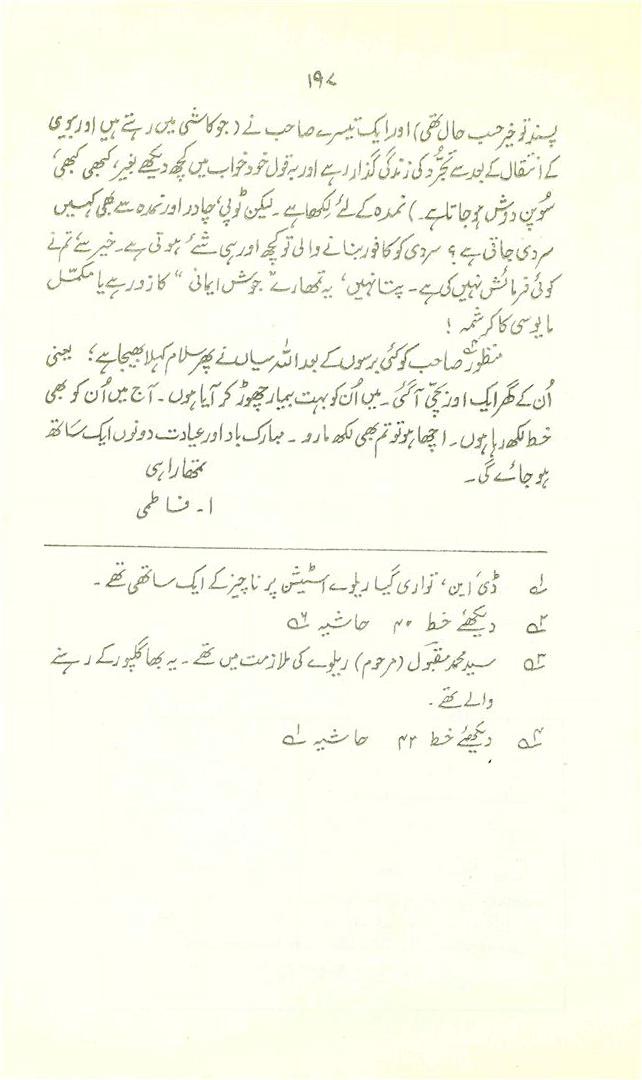 ۱۹۷
پسند تو خیر حسب حال تھی) اور ایک تیسرے صاحب نے (جو کاشی میں رہتے ہیں اور بیوی
کے انتقال کے بعد سے تجرُّد کی زندگی گذار رہے اور بہ قول خود خواب میں کچھ دیکھے بغیر، کبھی کبھی،
سُوپن دوش ہو جاتا ہے۔) نمدہ کے لئے لکھا ہے۔ لیکن ٹوپی، چادر اور نمدہ سے بھی کہیں
سردی جاتی ہے؟ سردی کو کافور بنانے والی تو کچھ اور ہی شئے ہوتی ہے۔ خیر سے تم نے
کوئی فرمائش نہیں کی ہے۔ پتا نہیں، یہ تمھارے "جوش ایمانی" کا زور ہے یا مکمّل
مایوسی کا کرشمہ!
منظور؎۴ صاحب کو کئی برسوں کے بعد اللہ میاں نے پھر سلام کہلا بھیجا ہے؛ یعنی
اُن کے گھر ایک اور بچّی آ گئی۔ میں اُن کو بہت بیمار چھوڑ کر آیا ہوں۔ آج میں اُن کو بھی
خط لکھ رہا ہوں۔ اچھا ہو تو تم بھی لکھ مارو۔ مبارک باد اور عیادت دونوں ایک ساتھ
ہو جائے گی۔
تمھارا ہی
ا۔ فاطمی
؎۱ ڈی، این، تواری گیا ریلوے اسٹیشن پر ناچیز کے ایک ساتھی تھے۔
؎۲ دیکھئے خط ۴۰ حاشیہ ؎۶
؎۳ سید محمد مقبول (مرحوم) ریلوے کی ملازمت میں تھے۔ یہ بھاگلپور کے رہنے
والے تھے۔
؎۴ دیکھئے خط ۴۲ حاشیہ ؎۱